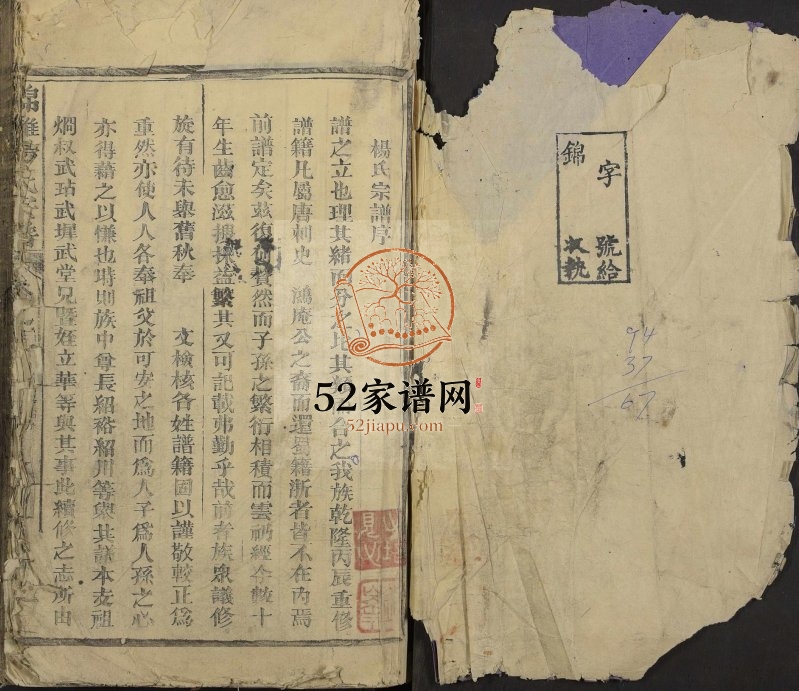 錦 字 號給
收執
94
37
67
楊氏宗譜序
譜之立也理其緒而分之比其 合之我族乾隆丙辰重修
譜籍凡屬唐刺史 鴻庵公之裔而還蜀籍浙者皆不在內焉
前譜定矣茲復何贅然而子孫之繁衍相積而雲礽經今數十
年生齒愈滋 益繁其又可記載弗勤乎哉前者族眾議修
旋有待未舉舊秋奉 文檢核各姓譜籍固以謹敬較正爲
重然亦使人人各奉祖父於可安之地而爲人子爲人孫之心
亦得藉之以慊也時則族中尊長紹裕紹川等與其議本支祖
燗叔武玷武墀武堂兄暨姪立華等與其事此續修之志所由
52家谱网
52jiapu.com